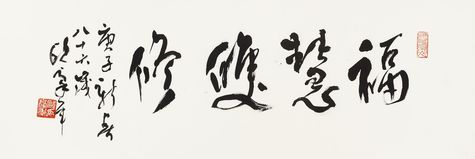 福慧雙修
庚子新春
八十六歲